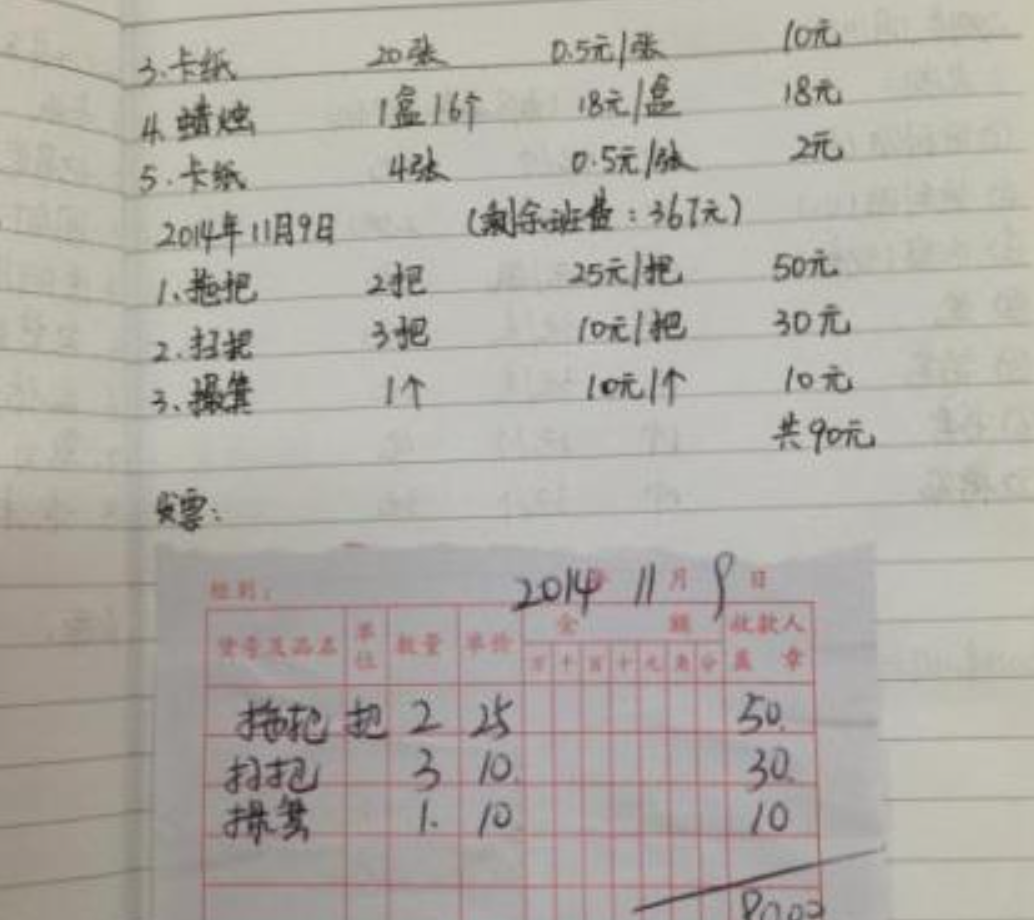 3.卡纸 20张 0.5元/张 10元
4.蜡烛 1盒16个 18元/盒 18元
5.卡纸 4张 0.5元/张 2元
2014年11月9日 (剩余班费:367元)
1.拖把 2把 25元/把 50元
2.扫把 3把 10元/把 30元
3.撮箕 1个 10元/个 10元
共90元
发票:
2014 11月9日
货号及品名 单位 数量 单价 金额 收款人盖章
万千百十元角分
拖把 把 2 25 50.
扫把 3 10. 30.
撮箕 1. 10 10